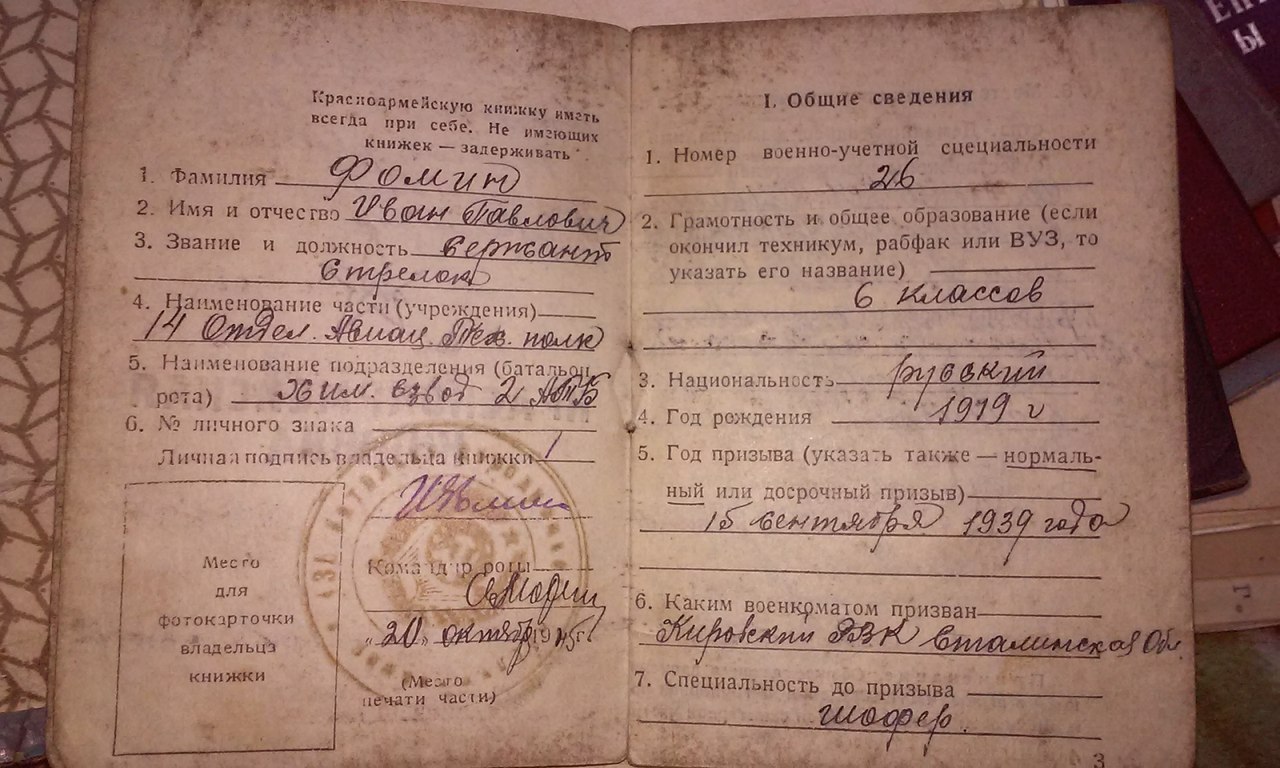 Красноармейскую книжку иметь
всегда при себе. Не имеющих
книжек — задерживать.
1. Фамилия Фомин
2. Имя и отчество Иван Павлович
3. Звание и должность сержант
Стрелок
4. Наименование части (учреждения)
14 Отдел. Авиац. Тех. полк
5. Наименование подразделения (батальон
рота) Хим. взвод 2 АТБ
6. № личного знака
Личная подпись владельца книжки
Место
для
фотокарточки
владельца
книжки
Командир роты
„20„ октябр 1945г.
(Место
печати части)
I. Общие сведения
1. Номер военно-учетной специальности
26
2. Грамотность и общее образование (если
окончил техникум, рабфак или ВУЗ, то
указать его название)
6 классов
3. Национальность русский
4. Год рождения 1919 г
5. Год призыва (указать также — нормаль-
ный или досрочный призыв)
15 сентября 1939 года
6. Каким военкоматом призван
Кировский РВК Сталинская Обл
7. Специальность до призыва
шофер.
3